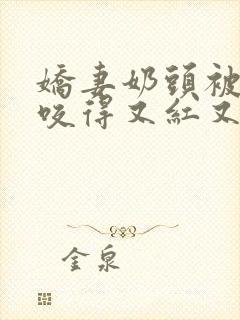 嬌妻奶頭被
咬得又紅又
金泉